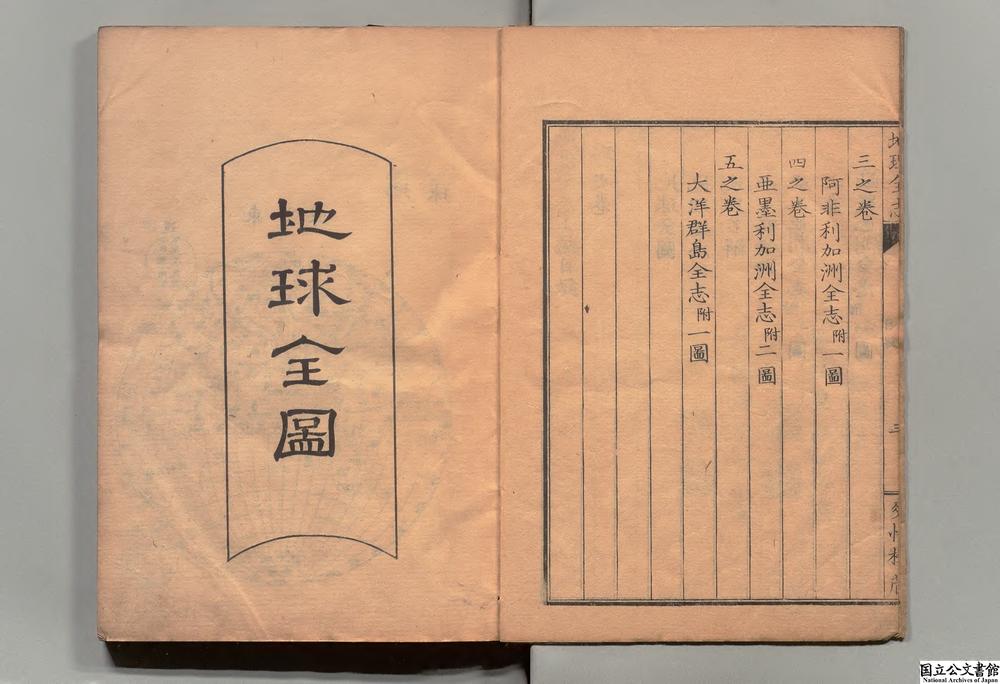 地球全志
三
三之卷
阿非利加洲全志附一圖
四之卷
亜墨利加洲全志附二圖
五之卷
大洋群島全志附一圖
地球全圖
国立公文書館
National Archives of Japan